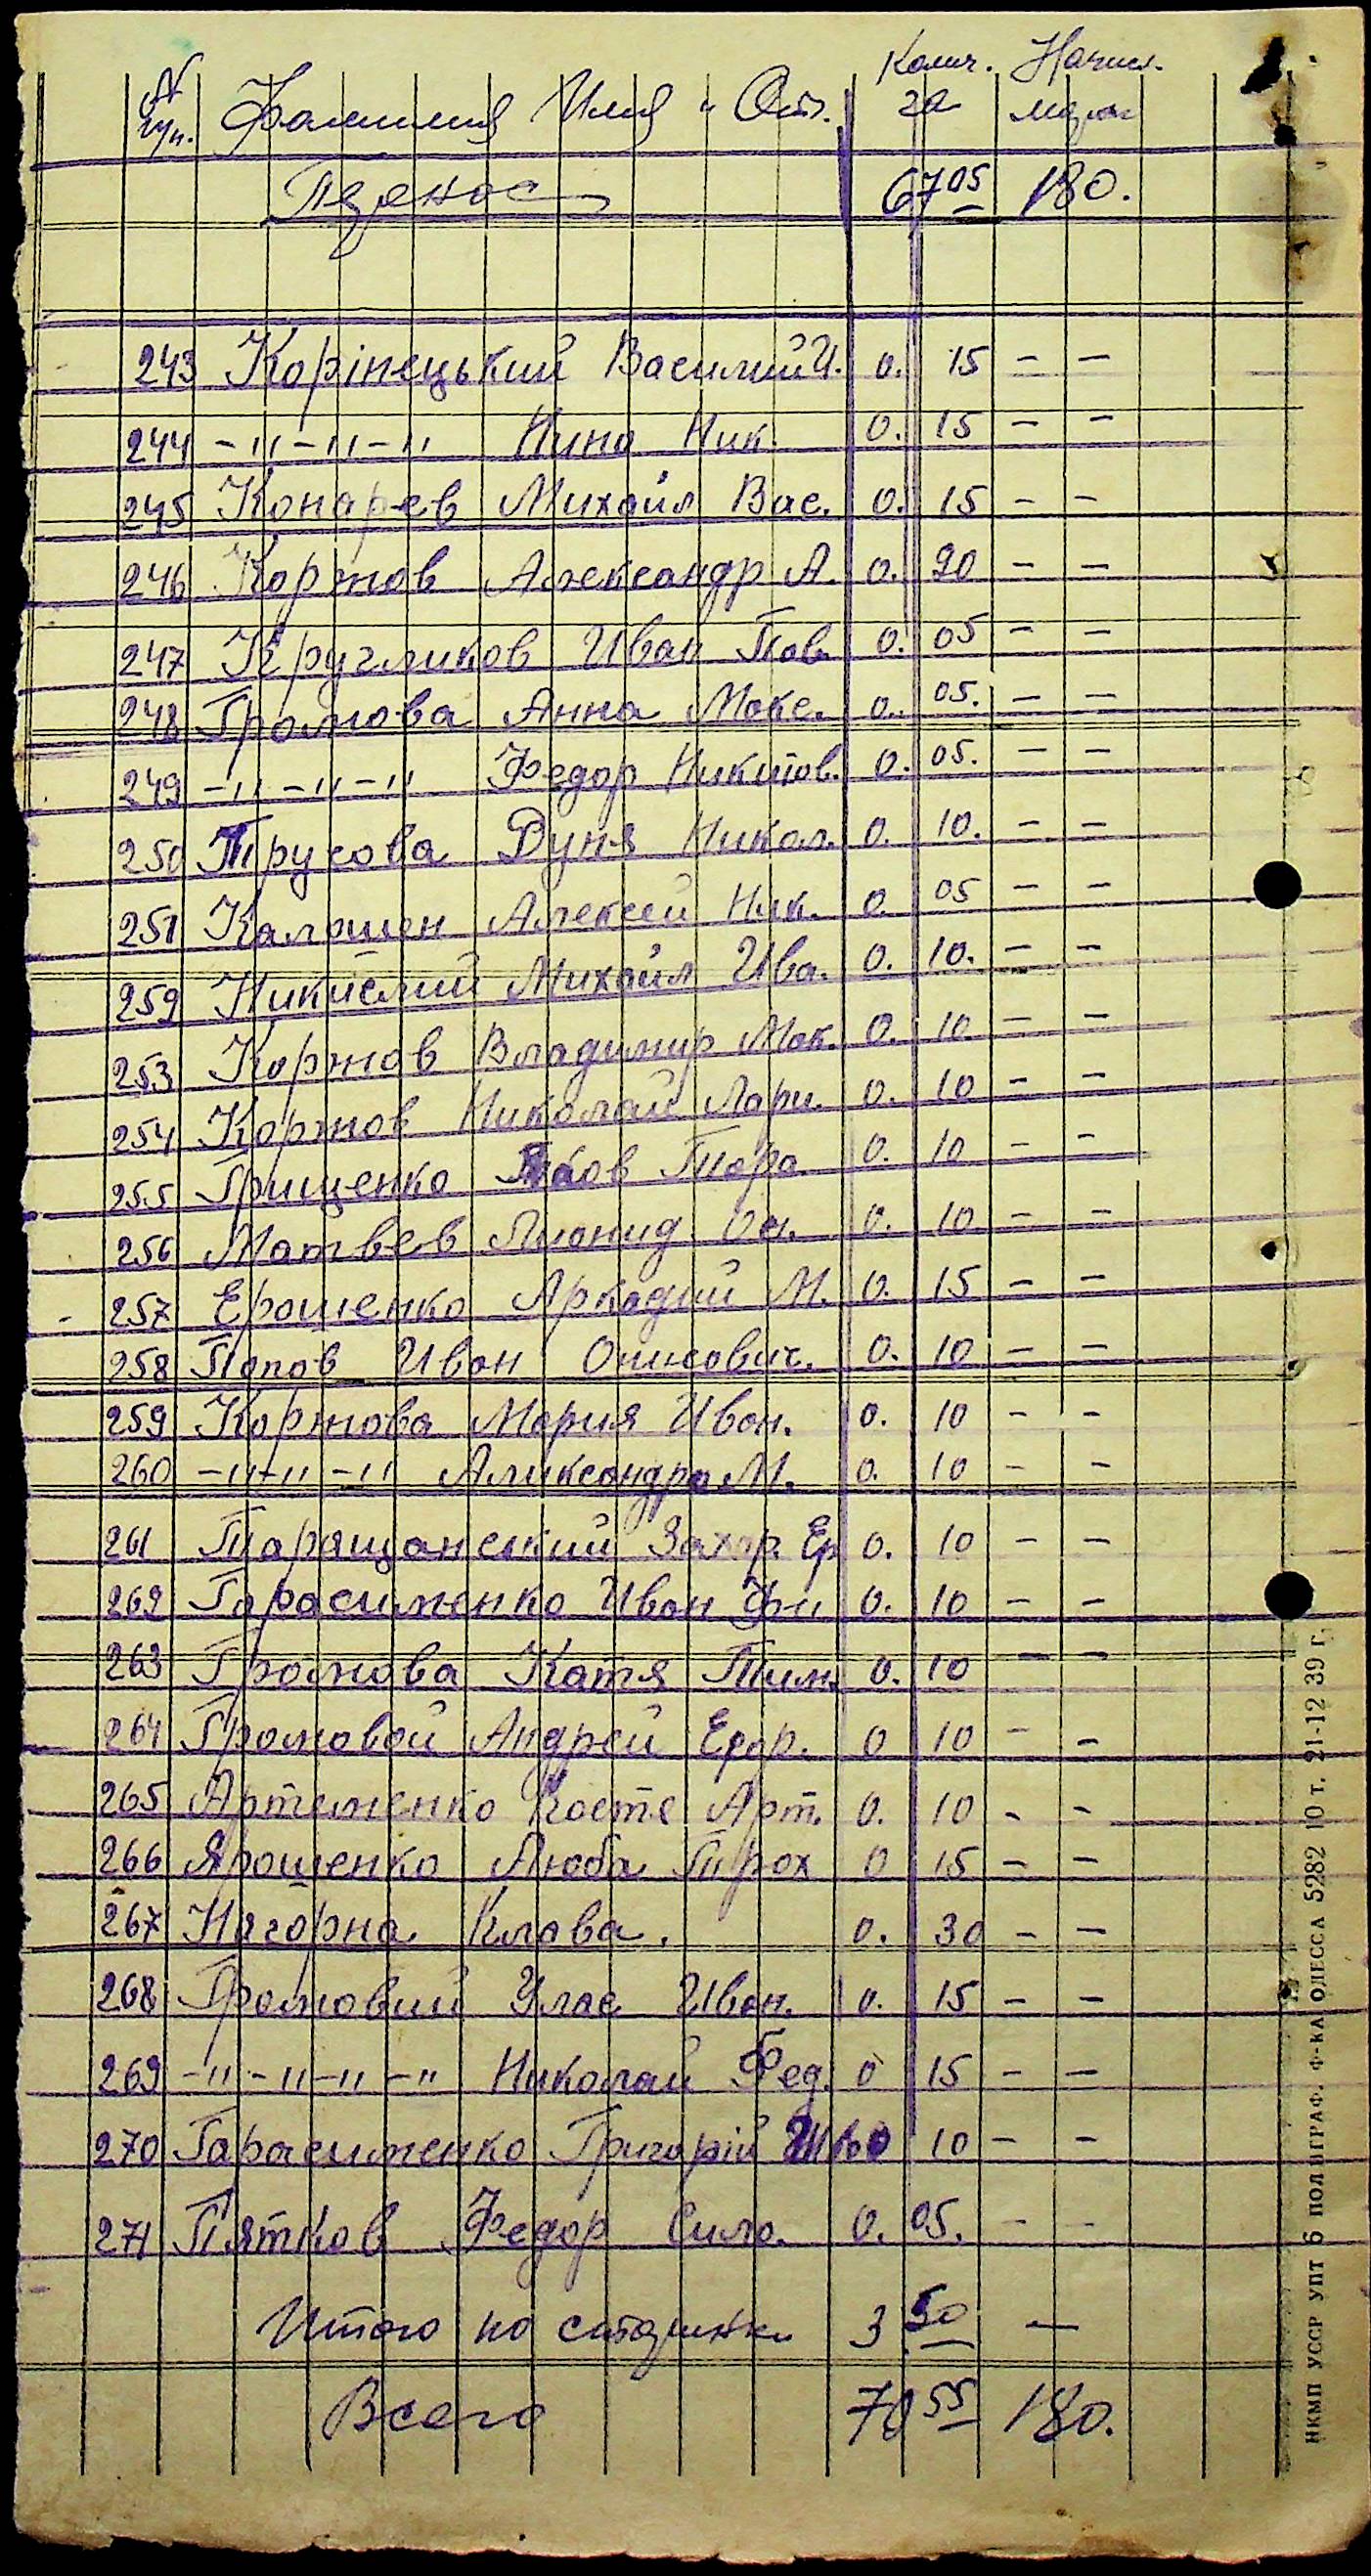 № Колич. Начисл.
п/п. Фамилия Имя и От. га марок
Перенос 67 05 180.
243 Корінецький Василий И. 0. 15 – –
244 –"–"–" Нина Ник. 0. 15 – –
245 Конарев Михаил Вас. 0. 15 – –
246 Коржов Александр А. 0. 20 – –
247 Кругликов Иван Пав. 0. 05 – –
248 Громова Анна Макс. 0. 05. – –
249 –"–"–" Федор Никитов. 0. 05. – –
250 Трусова Дуня Никол. 0. 10. – –
251 Калашен Алексей Ник. 0. 05 – –
252 Михаил Ива. 0. 10. – –
253 Коржов Владимир Мак. 0. 10 – –
254 Коржов Николай Лари. 0. 10 – –
255 Грищенко Яков Тара. 0. 10 – –
256 Матвеев Лионид Ос. 0. 10 – –
257 Ерошенко Аркадий М. 0. 15 – –
258 Попов Иван 0. 10 – –
259 Коржова Мария Иван. 0. 10 – –
260 –"–"–" Аликсандра М. 0. 10 – –
261 Таращанский Захар Ер 0. 10 – –
262 Гарасименко Иван Фи 0. 10 – –
263 Громова Катя Тим. 0. 10 – –
264 Громовой Андрей Егор. 0 10 – –
265 Артеменко Костя Арт. 0. 10 – –
266 Ярошенко Люба Трох 0 15 – –
267 Нагорна Клава. 0. 30 – –
268 Громовий Улас Иван. 0. 15 – –
269 –"–"–"–" Николай Фед. 0 15 – –
270 Гарасименко Григорій Ив 0 10 – –
271 Пятков Федор Сило. 0. 05. – –
Итого по странички 3 50 —
Всего 70 55 180.
НКМП УССР УПТ 6 ПОЛИГРАФ. Ф-КА ОДЕССА 5282 10 т. 21-12 39 г.